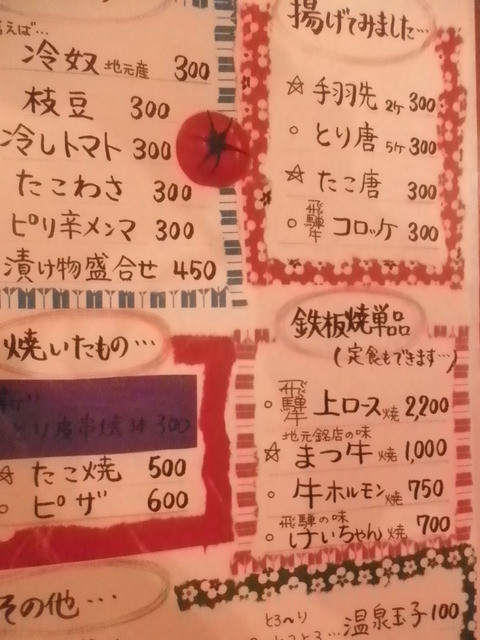 言えば…
冷奴 地元産 300
枝豆 300
冷しトマト 300
たこわさ 300
ピリ辛メンマ 300
漬け物盛合せ 450
揚げてみました…
☆ 手羽先 2ケ 300
○ とり唐 5ケ 300
☆ たこ唐 300
○ 飛騨牛 コロッケ 300
焼いたもの…
300
☆ たこ焼 500
○ ピザ 600
鉄板焼単品
(定食もできます…)
○ 飛騨牛 上ロース焼 2,200
地元銘店の味
☆ まつ牛焼 1,000
○ 牛ホルモン焼 750
飛騨の味
○ けいちゃん焼 700
その他…
とろ〜り
温泉玉子 100